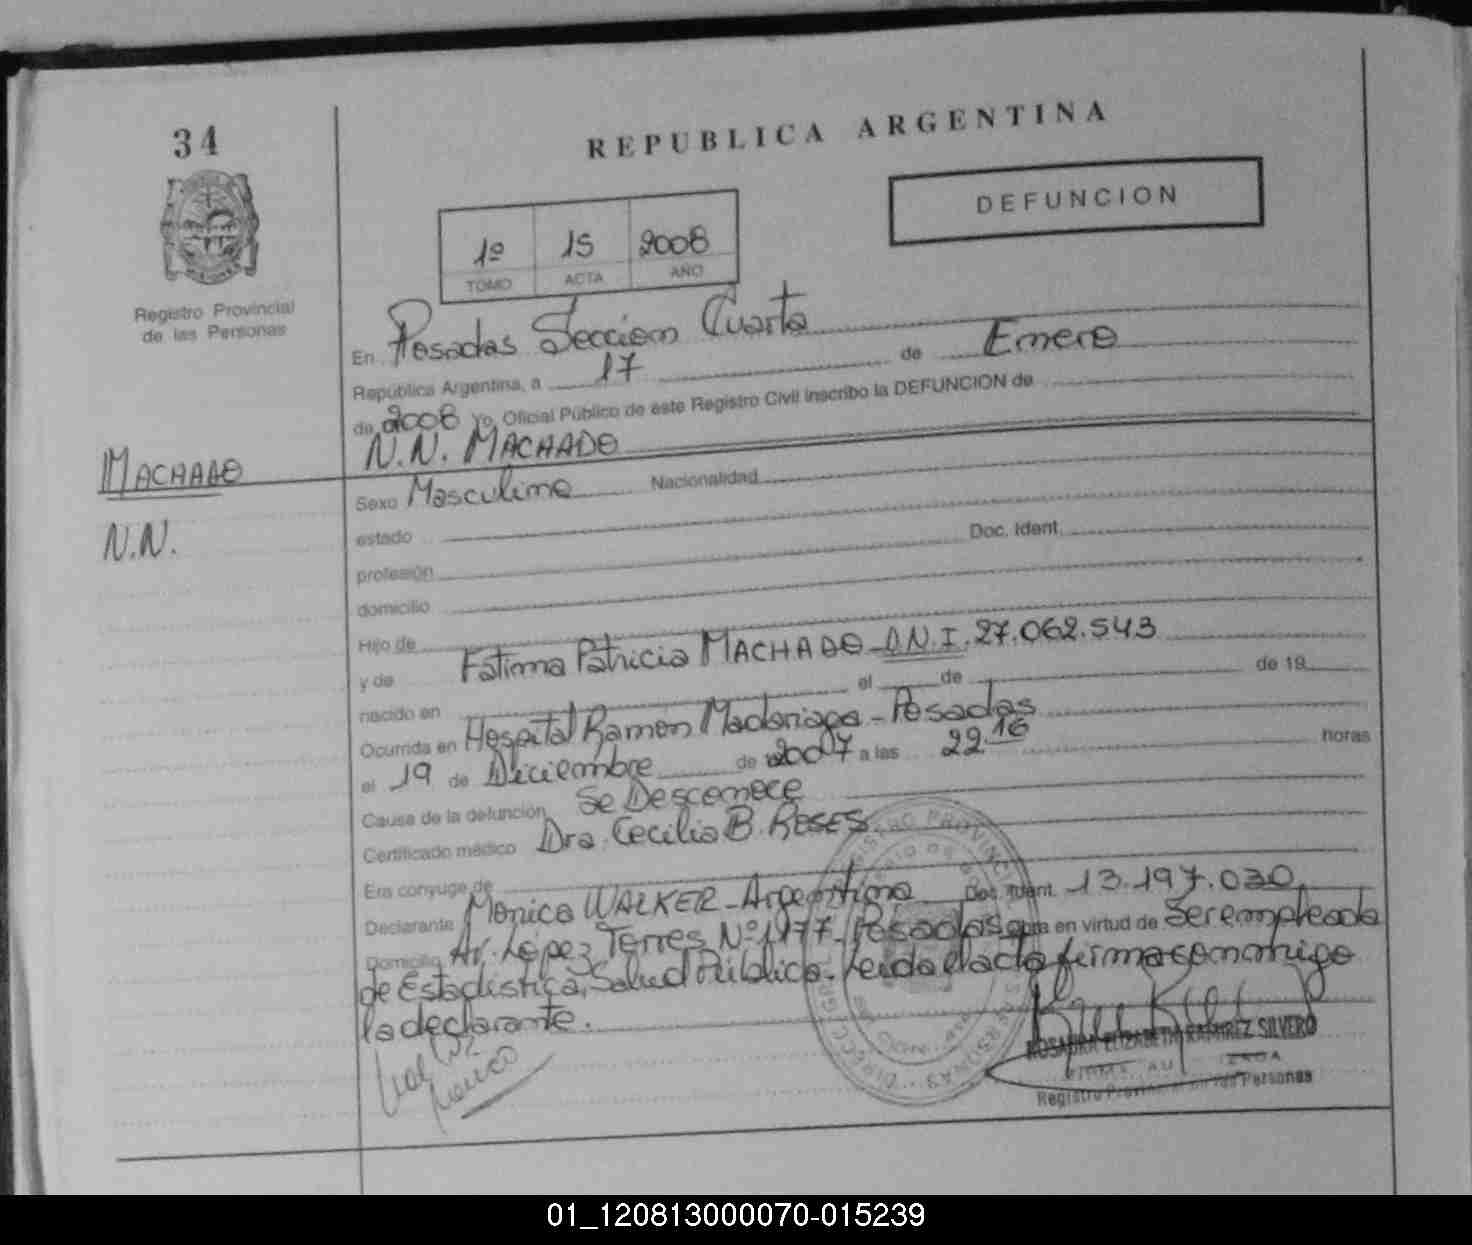 34
REPUBLICA ARGENTINA
DEFUNCION
1º 15 2008
TOMO ACTA AÑO
Registro Provincial
de las Personas
En Posadas Seccion Cuarta
República Argentina, a 17 de Enero
de 2008 Yo, Oficial Público de este Registro Civil inscribo la DEFUNCION de
N.N. MACHADO
MACHADO
N.N.
Sexo Masculino Nacionalidad
estado
profesión Doc. Ident.
domicilio
Hijo de
y de Fatima Patricia MACHADO D.N.I. 27.062.543
nacido en el de de 19
Ocurrida en Hospital Ramon Madariaga - Posadas
el 19 de Diciembre de 2007 a las 22.16 horas
Causa de la defunción Se Desconoce
Certificado médico Dra. Cecilia B. ROSES
Era conyuge de
Declarante Monica WALKER - Argentina Doc. Ident. 13.197.030
Domicilio Av. Lopez Torres Nº 1477 Posadas en virtud de Ser empleada
de Estadistica, Salud Publica. Leida el acta firma conmigo
la declarante.
RAMIREZ SILVERO
Registro Personas
01_120813000070-015239